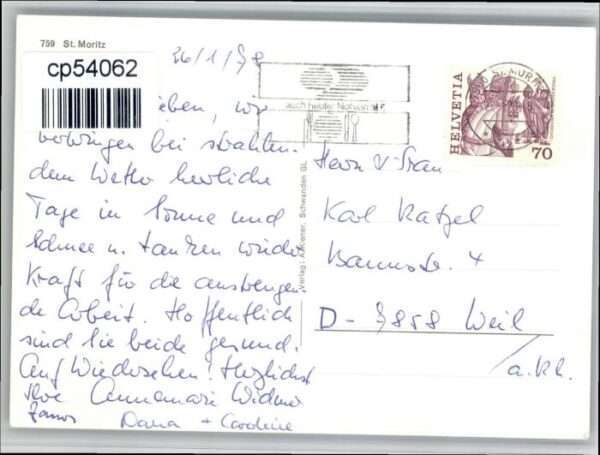 759 St. Moritz
cp54062
26/1/78
ieben, wir
verbringen bei strahlen-
dem Wetter herrliche
Tage in Sonne und
Schnee u. tanken wieder
Kraft für die anstrengen-
de Arbeit. Hoffentlich
sind Sie beide gesund.
Auf Wiedersehen! Herzlichst
Ihre Annemarie Widmer
Dana + Caroline
Verlag: A. Kiener, Schwanden GL
auch heute
HELVETIA
70
Herrn u Frau
Karl Ratzel
D-7858 Weil
a. Rh.